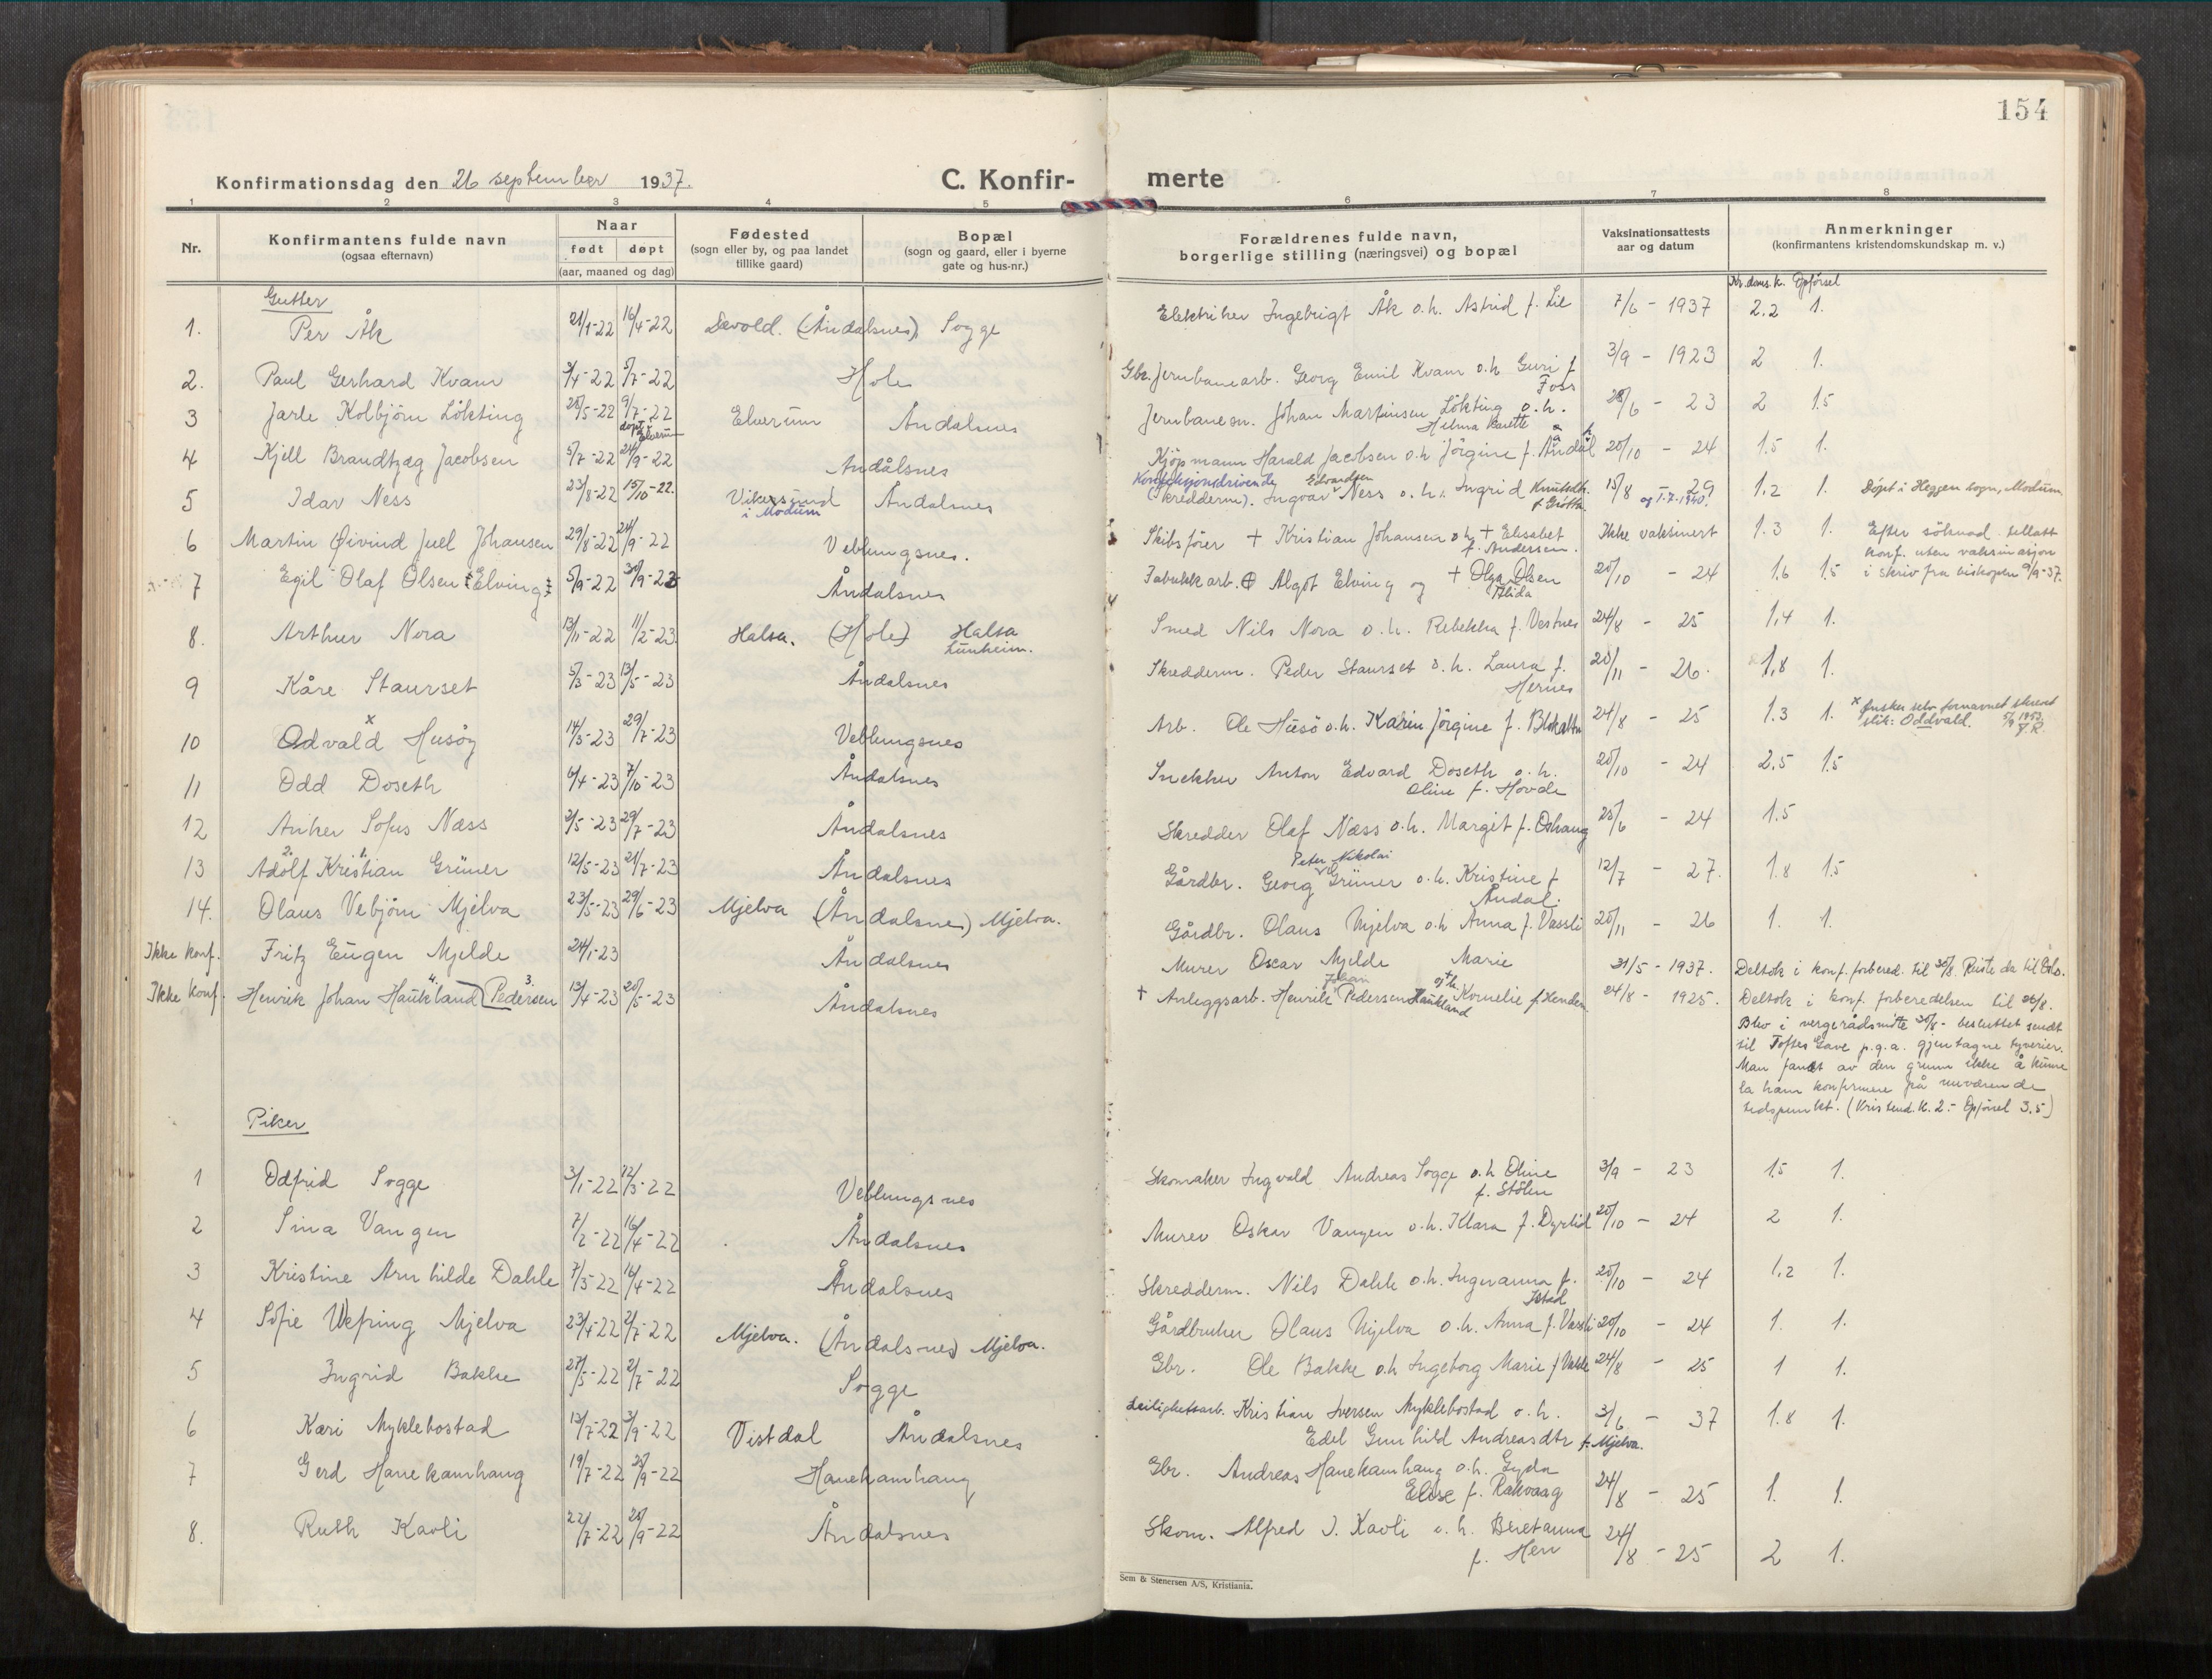 154
Konfirmationsdag den 26 september 1937.
C. Konfir-
merte
1 2 3 4 5 6 7 8
Nr.
Konfirmantens fulde navn
(ogsaa efternavn)
Naar
født døpt
(aar, maaned og dag)
Fødested
(sogn eller by, og paa landet
tillike gaard)
Bopæl
(sogn og gaard, eller i byerne
gate og hus-nr.)
Forældrenes fulde navn,
borgerlige stilling (næringsvei) og bopæl
Vaksinationsattests
aar og datum
Anmerkninger
(konfirmantens kristendomskundskap m. v.)
Kr.doms.k. Opførsel
Gutter
1. Per Åk 21/1-22 16/4-22 Devold. (Åndalsnes) Sogge Elektriker Ingebrigt Åk o.h. Astrid f. Lie 7/6 - 1937 2.2 1.
2. Paul Gerhard Kvam 3/4-22 5/7-22 Hole Gbr. Jernbanearb. Georg Emil Kvam o.h. Guri f. 3/9 - 1923 2 1.
Foss
3 Jarle Kolbjørn Løkting 28/5-22 9/7-22 Elverum Åndalsnes Jernbanesn. Johan Martinsen Løkting o.h. 28/6 - 23 2 1.5
døpt i Elverum
Helma Karette
4 Kjell Brandtzæg Jacobsen 5/7-22 24/9-22 Andålsnes Kjøpmann Harald Jacobsen o.h. Jørgine f. Åndal 20/10 - 24 1.5 1.
Konfeksjonsdrivende Edvardsen
5 Idar Ness 23/8-22 15/10-22. Vikersund Åndalsnes (Skredderm). Ingvar Ness o.h. Ingrid Knutsdtr. 15/8 - 29 1.2 1. Døpt i Heggen sogn, Modum.
i Modum
f. Grøtta og 1.7.1940.
6 Martin Øivind Juel Johansen 29/8-22 24/9-22 Veblungsnes. Skibsfører + Kristian Johansen o.h. + Elisabet Ikke vaksinert 1.3 1. Efter søknad tillatt
f. Andersen. konf. uten vaksinasjon
i skriv fra biskopen 9/9-37.
7 Egil Olaf Olsen Elving 5/9-22 30/9-23 Åndalsnes Fabrikkarb. Algot Elving og + Olga Olsen 20/10 - 24 1.6 1.5
Alida
8. Arthur Nora 13/11-22 11/2-23 Halsa. (Hole) Halsa Smed Nils Nora o.h. Rebekka f. Vestnes 24/8 - 25 1.4 1.
Lunheim.
9 Kåre Staurset 5/3-23 13/5-23 Åndalsnes Skredderm. Peder Staurset o.h. Laura f. 20/11 - 26. 1.8 1.
Hernes
10 Odvald x Husøy 14/3-23 29/7-23 Veblungsnes Arb. Ole Husø o.h. Karin Jørgine f. 24/8 - 25 1.3 1. x Ønsker selv fornavnet skrevet
slik: Oddvald. 5/9 1952. J.R.
11 Odd Doseth 6/4-23 7/10-23 Åndalsnes Snekker Anton Edvard Doseth o.h. 20/10 - 24 2.5 1.5
Oline f. Hovde
12 Anker Sofus Næss 2/5-23 29/7-23 Åndalsnes Skredder Olaf Næss o.h. Margit f. Oshaug 25/6 - 24 1.5
Peter Nikolai
13 Adolf Kristian Grüner 12/5-23 21/7-23 Åndalsnes Gårdbr. Georg Grüner o.h. Kristine f. 12/7 - 27. 1.8 1.5
Åndal.
14. Olaus Vebjørn Mjelva 23/5-23 29/6-23 Mjelva (Åndalsnes) Mjelva. Gårdbr. Olaus Mjelva o.h. Anna f. Vassli 20/11 - 26 1. 1.
Ikke konf. Fritz Eugen Mjelde 24/1-23 Åndalsnes Murer Oscar Mjelde Marie 31/5 - 1937. Deltok i konf. forbered. til 30/8. Reiste da til Oslo.
Ikke konf. Henrik Johan Haukland [Pedersen 13/4-23 20/5-23 Åndalsnes + Anleggsarb. Henrik Johan Pedersen Haukland o.h. Kornelie f. Henden. 24/8 - 1925. Deltok i konf. forberedelsen til 26/8.
Blev i vergerådsmøte 30/8 - besluttet sendt
til Toftes Gave p.g.a. gjentagne tyverier.
Man fandt av den grunn ikke å kunne
la ham konfirmere på nuværende
tidspunkt. (Kristend.k. 2. - Opførsel 3.5)
Piker
1 Odfrid Sogge 3/1-22 12/3-22 Veblungsnes Skomaker Ingvald Andreas Sogge o.h. Oline 3/9 - 23 1.5 1.
f. Stølen
2 Sina Vangen 7/2-22 16/4-22 Åndalsnes Murer Oskar Vangen o.h. Klara f. Dyrlid 20/10 - 24 2 1.
3 Kristine Arnhilde Dahle 7/3-22 16/4-22 Åndalsnes Skredderm. Nils Dahle o.h. Ingvanna f. 20/10 - 24 1.2 1.
Istad
4 Sofie Mjelva 23/4-22 2/7-22 Mjelva. (Åndalsnes) Mjelva. Gårdbruker Olaus Mjelva o.h. Anna f. Vassli 20/10 - 24 1. 1.
5 Ingrid Bakke 27/5-22 2/7-22 Sogge Gbr. Ole Bakke o.h. Ingeborg Marie f. 24/8 - 25 1 1.
6 Kari Myklebostad 13/7-22 3/9-22 Vistdal Åndalsnes Leilighetsarb. Kristian Iversen Myklebostad o.h. 3/6 - 37 1.8 1.
Edel Gunhild Andreasdtr f. Mjelva.
7 Gerd Hanekamhaug 19/7-22 25/9-22 Hanekamhaug Gbr. Andreas Hanekamhaug o.h. Gyda 24/8 - 25 1. 1.
Elise f. Rakvaag
8. Ruth Kavli 22/7-22 25/9-22 Åndalsnes Skom. Alfred J. Kavli o.h. Beretanna 24/8 - 25 2 1.
f. Hen
Sem & Stenersen A/S, Kristiania.